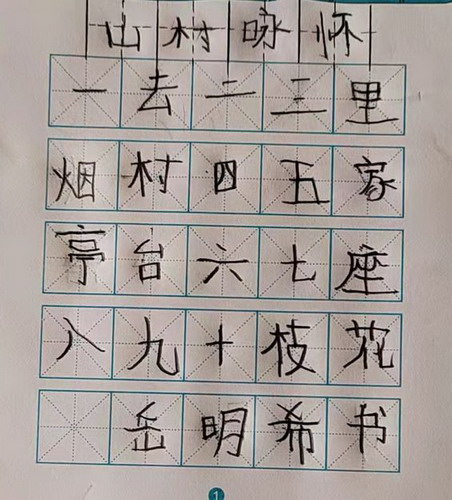 山村咏怀
一去二三里
烟村四五家
亭台六七座
八九十枝花
岳明希书
1